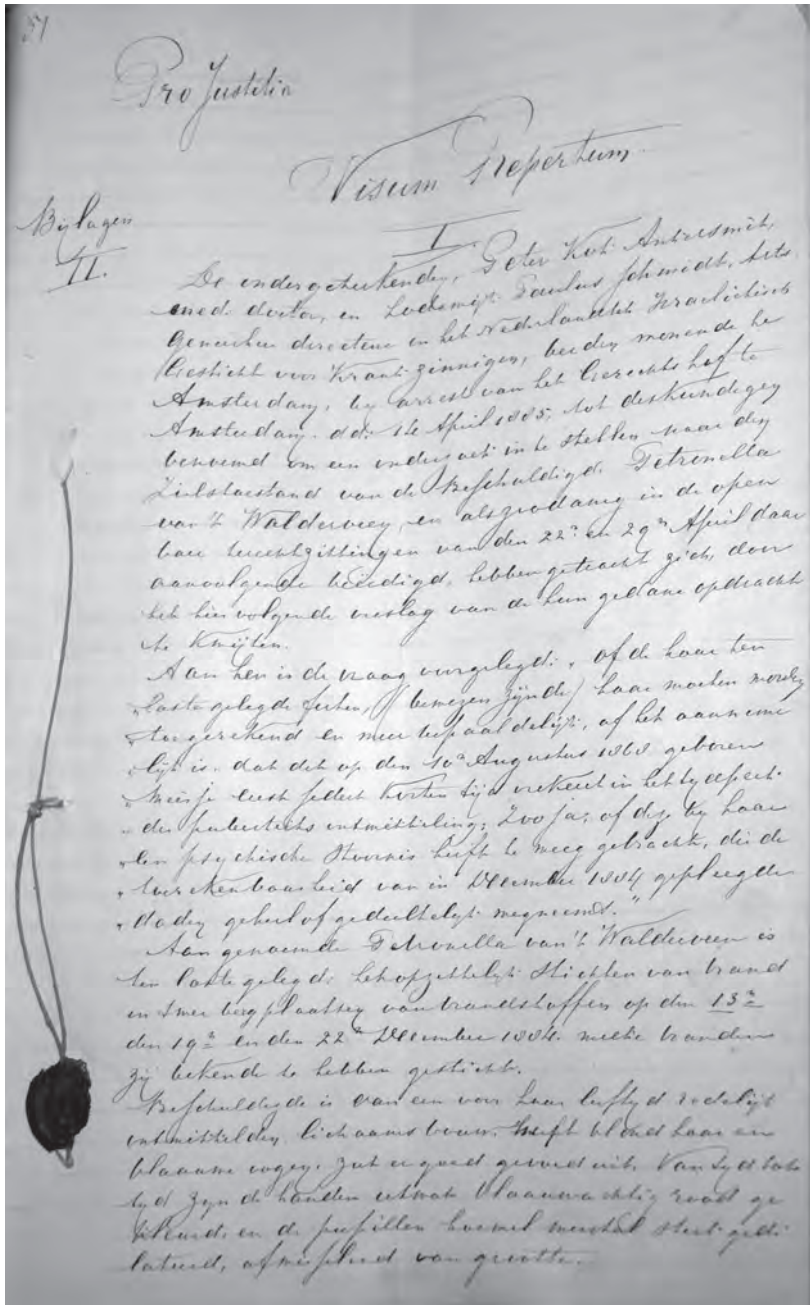 51
Pro Justitia
Visum Repertum.
Bijlagen
II.
I.
De ondergeteekenden, Peter
med. doctor, en Lodewijk Paulus Schmidt, Arts
Geneesheer directeur in het Nederlandsch Israelietisch
Gesticht voor Krankzinnigen, beiden wonende te
Amsterdam, by arrest van het Gerechtshof te
Amsterdam. dd: April 1885, tot deskundigen
benoemd om een onderzoek in te stellen naar den
Zielstoestand van de Beschuldigde Petronella
van 't Walderveen, en als zoodanig in de open
bare terechtzittingen van den 22n en 29n April daar
aanvolgende beëedigd, hebben getracht zich, door
het hier volgende verslag van de hun gedane opdracht
te kwijten.
Aan hen is de vraag voorgelegd: „of de haar ten
„laste gelegde feiten, (bewezen zijnde) haar moeten worden
„toegerekend en meer bepaaldelijk, of het aanneme
„lijk is, dat dit op den 10n Augustus 1868 geboren
„meisje eerst sedert korten tijd verkeert in het tydperk
„der puberteits ontwikkeling; Zoo ja, of deze by haar
„een psychische Stoornis heeft te weeg gebracht, die de
„toerekenbaarheid van in December 1884 gepleegde
„daden geheel of gedeeltelijk wegneemt."
Aan genoemde Petronella van 't Walderveen is
ten laste gelegd: het opzettelijk stichten van brand
in twee bergplaatsen van brandstoffen op den 13n
den 19n en den 22n December 1884. welke branden
zij bekende te hebben gesticht.
Beschuldigde is van een voor haar leeftyd redelijk
ontwikkelden lichaamsbouw. Heeft blond haar en
blaauwe oogen, ziet er goed gevoed uit. Van tyd tot
tyd zijn de handen ietwat blaauwachtig rood ge
kleurd, en de pupillen hoewel meestal sterk gedi
lateerd, afwisselend van grootte.